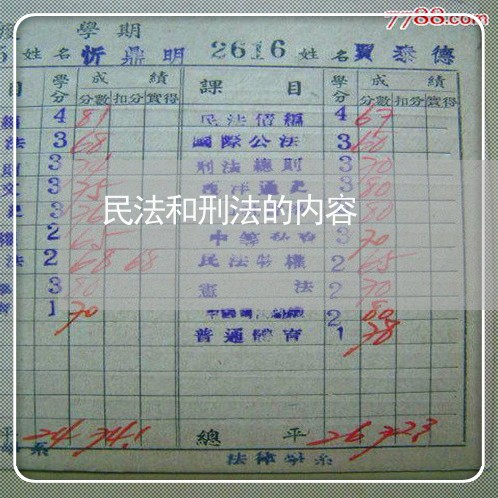 7788.com
學期
姓名 忻鼎明 2616 姓名 賈泰德
目 學分 成績 課目 學分 成績
分數 扣分 實得 分數 扣分 實得
4 81 民法債編 4 67
法 3 68 國際公法 3 60
3 刑法總則 3 70
3 75 西洋通史 3 80
民法和刑法的内容
3 80
2 65 3 70
法 2 68 68 民法物權 2 65
3 80 憲法 2 70
1 70 2 80
普通體育 1 78
平 24 74.1 總平 26 72.3
系 法律學系